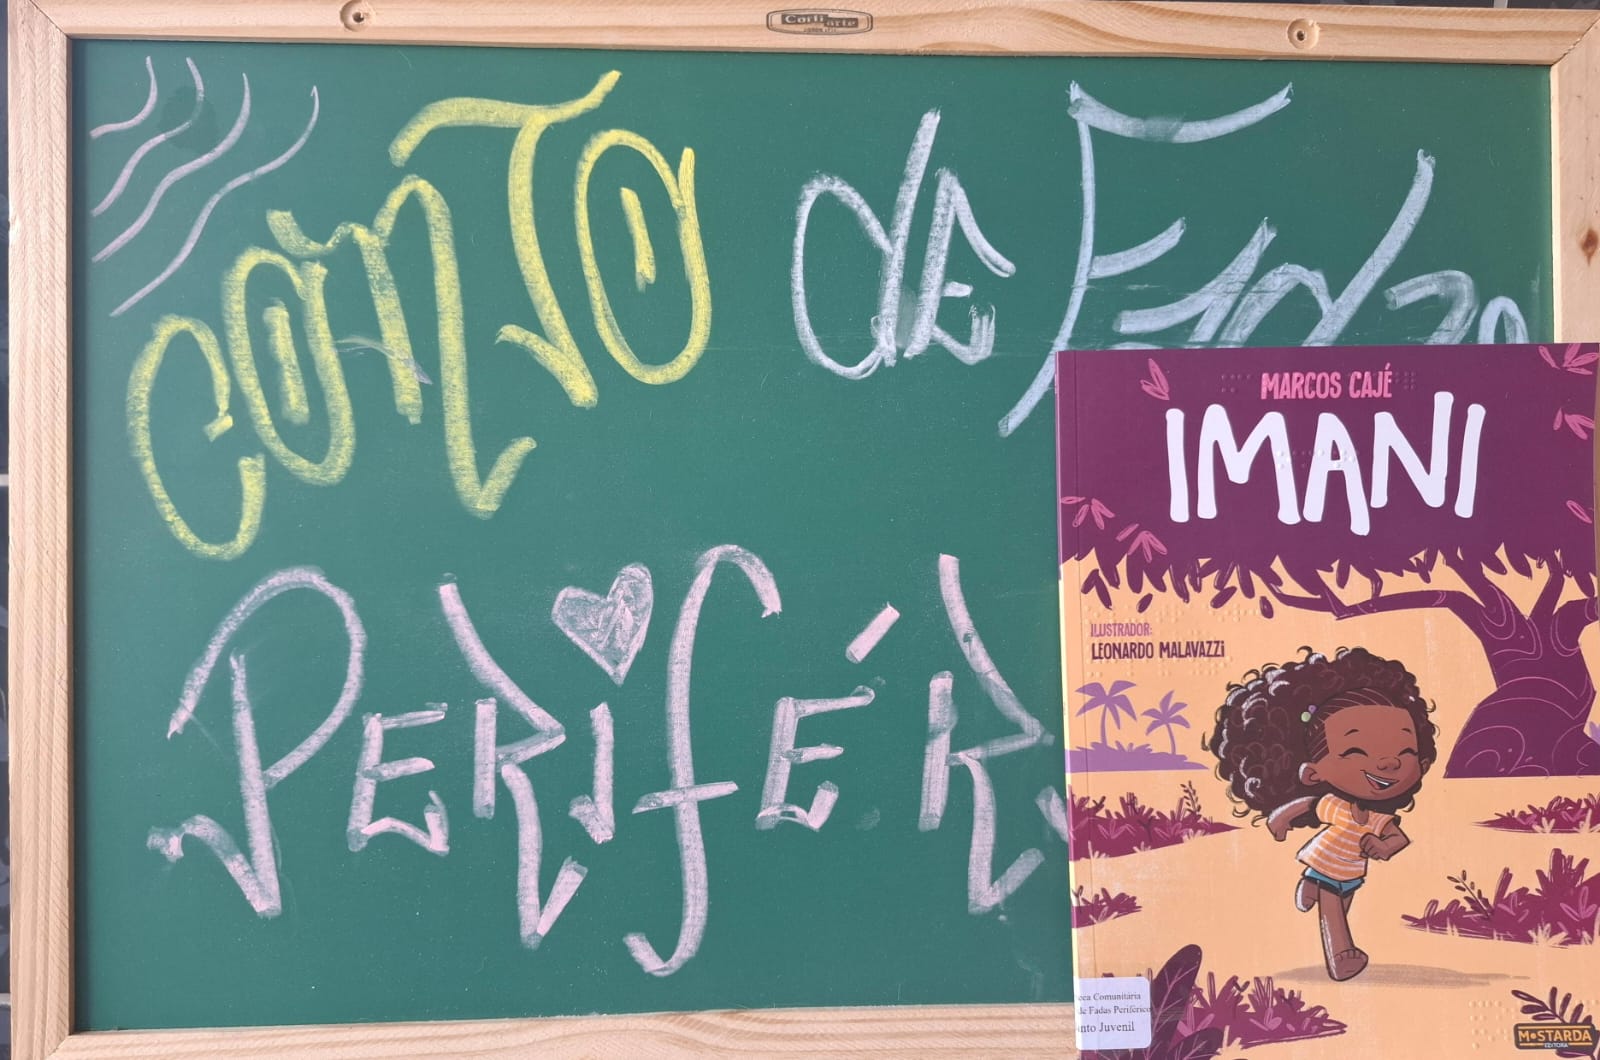 Corti arte
CONTO de Fadas
PERIFÉR
MARCOS CAJÉ
IMANI
ILUSTRADOR:
LEONARDO MALAVAZZi
oca Comunitária
de Fadas Periférico
nto Juvenil
MOSTARDA
EDITORA